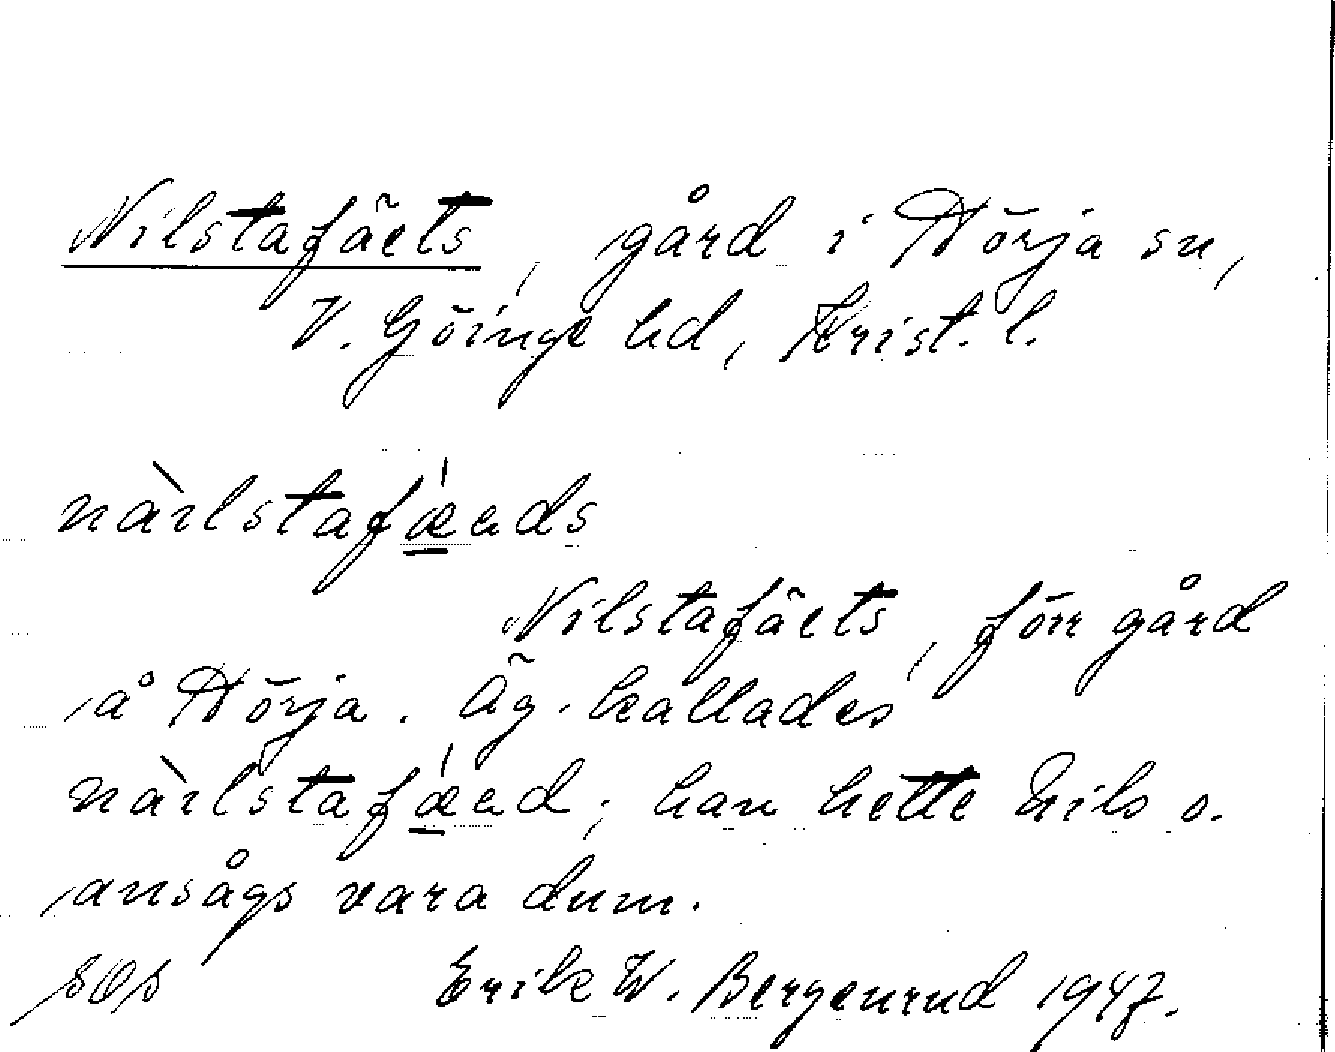 Nilstafäets, gård i Hörja sn,
V. Göinge hd, Krist. l.
nàilstafǽeds
Nilstafäets, förr gård
å Hörja. Äg. kallades
nàilstafǽed; han hette Nils o.
ansågs vara dum.
sOs Erik W. Bergenrud 1947.